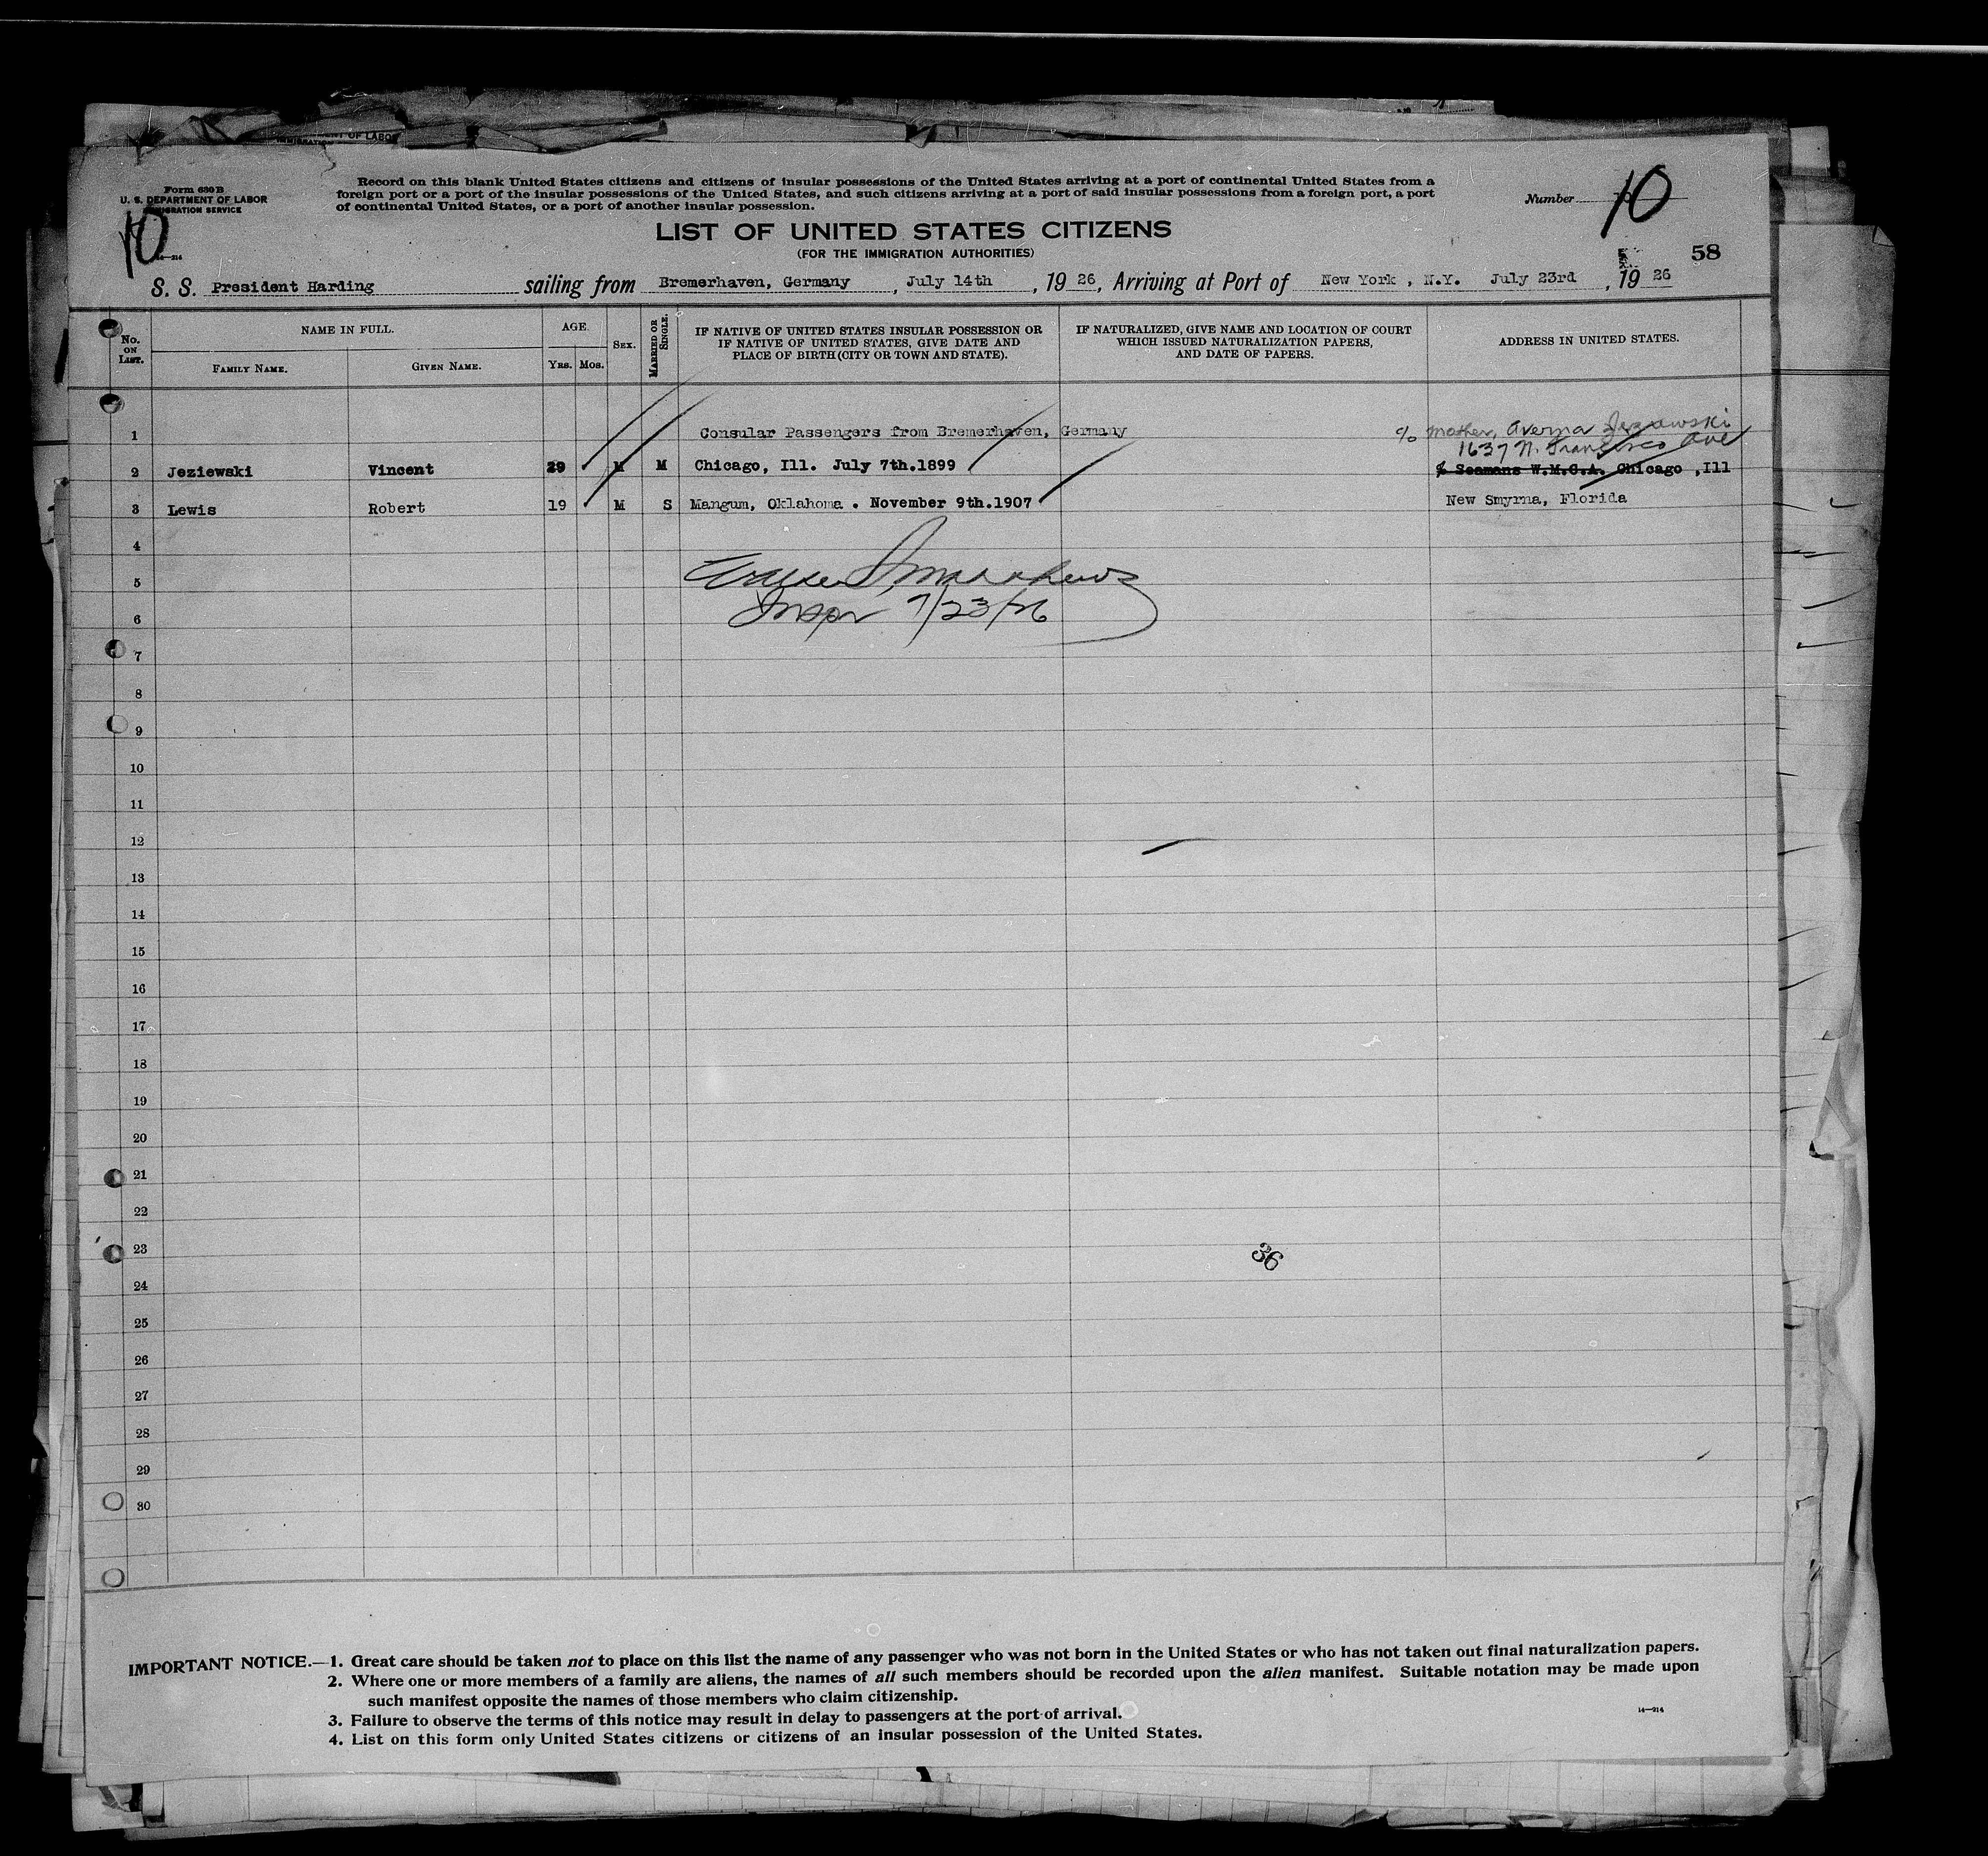 Form 630 B
U. S. DEPARTMENT OF LABOR
IMMIGRATION SERVICE
Record on this blank United States citizens and citizens of insular possessions of the United States arriving at a port of continental United States from a
foreign port or a port of the insular possessions of the United States, and such citizens arriving at a port of said insular possessions from a foreign port, a port
of continental United States, or a port of another insular possession.
Number 10
10
14—214
LIST OF UNITED STATES CITIZENS
(FOR THE IMMIGRATION AUTHORITIES)
58
S. S. President Harding sailing from Bremerhaven, Germany, July 14th, 1926, Arriving at Port of New York, N.Y. July 23rd, 1926
No. ON LIST.
NAME IN FULL.
FAMILY NAME.
GIVEN NAME.
AGE.
YRS. MOS.
SEX.
MARRIED OR SINGLE.
IF NATIVE OF UNITED STATES INSULAR POSSESSION OR
IF NATIVE OF UNITED STATES, GIVE DATE AND
PLACE OF BIRTH (CITY OR TOWN AND STATE).
IF NATURALIZED, GIVE NAME AND LOCATION OF COURT
WHICH ISSUED NATURALIZATION PAPERS,
AND DATE OF PAPERS.
ADDRESS IN UNITED STATES.
1 Consular Passengers from Bremerhaven, Germany
c/o Mother, Averna Jeziewski
1637 N. Francisco Ave
2 Jeziewski Vincent 29 M M Chicago, Ill. July 7th.1899 % Seamans W.M.C.A. Chicago ,Ill
3 Lewis Robert 19 M S Mangum, Oklahoma . November 9th.1907 New Smyrna, Florida
4
5
6 Inspr 7/23/26
7
8
9
10
11
12
13
14
15
16
17
18
19
20
21
22
23
36
24
25
26
27
28
29
30
IMPORTANT NOTICE.—1. Great care should be taken not to place on this list the name of any passenger who was not born in the United States or who has not taken out final naturalization papers.
2. Where one or more members of a family are aliens, the names of all such members should be recorded upon the alien manifest. Suitable notation may be made upon
such manifest opposite the names of those members who claim citizenship.
3. Failure to observe the terms of this notice may result in delay to passengers at the port of arrival.
4. List on this form only United States citizens or citizens of an insular possession of the United States.
14—214